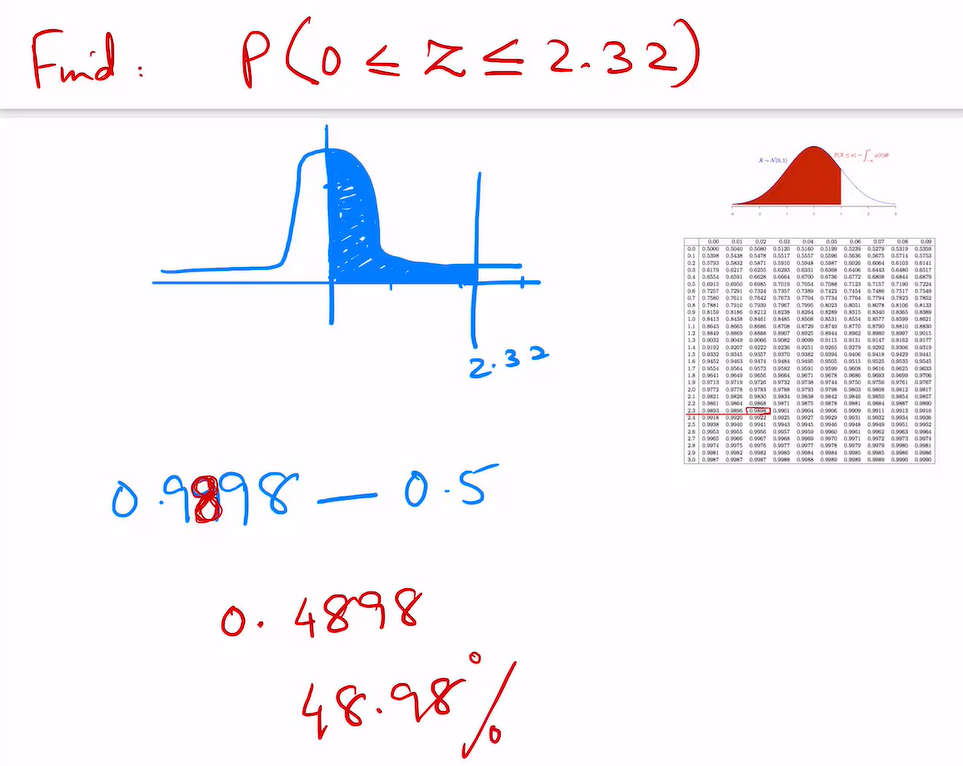 Find: P(0 ≤ Z ≤ 2.32)
X ~ N(0,1)
2.32
0.00 0.01 0.02 0.03 0.04 0.05 0.06 0.07 0.08 0.09
0.0 0.5000 0.5040 0.5080 0.5120 0.5160 0.5199 0.5239 0.5279 0.5319 0.5359
0.1 0.5398 0.5438 0.5478 0.5517 0.5557 0.5596 0.5636 0.5675 0.5714 0.5753
0.2 0.5793 0.5832 0.5871 0.5910 0.5948 0.5987 0.6026 0.6064 0.6103 0.6141
0.3 0.6179 0.6217 0.6255 0.6293 0.6331 0.6368 0.6406 0.6443 0.6480 0.6517
0.4 0.6554 0.6591 0.6628 0.6664 0.6700 0.6736 0.6772 0.6808 0.6844 0.6879
0.5 0.6915 0.6950 0.6985 0.7019 0.7054 0.7088 0.7123 0.7157 0.7190 0.7224
0.6 0.7257 0.7291 0.7324 0.7357 0.7389 0.7422 0.7454 0.7486 0.7517 0.7549
0.7 0.7580 0.7611 0.7642 0.7673 0.7704 0.7734 0.7764 0.7794 0.7823 0.7852
0.8 0.7881 0.7910 0.7939 0.7967 0.7995 0.8023 0.8051 0.8078 0.8106 0.8133
0.9 0.8159 0.8186 0.8212 0.8238 0.8264 0.8289 0.8315 0.8340 0.8365 0.8389
1.0 0.8413 0.8438 0.8461 0.8485 0.8508 0.8531 0.8554 0.8577 0.8599 0.8621
1.1 0.8643 0.8665 0.8686 0.8708 0.8729 0.8749 0.8770 0.8790 0.8810 0.8830
1.2 0.8849 0.8869 0.8888 0.8907 0.8925 0.8944 0.8962 0.8980 0.8997 0.9015
1.3 0.9032 0.9049 0.9066 0.9082 0.9099 0.9115 0.9131 0.9147 0.9162 0.9177
1.4 0.9192 0.9207 0.9222 0.9236 0.9251 0.9265 0.9279 0.9292 0.9306 0.9319
1.5 0.9332 0.9345 0.9357 0.9370 0.9382 0.9394 0.9406 0.9418 0.9429 0.9441
1.6 0.9452 0.9463 0.9474 0.9484 0.9495 0.9505 0.9515 0.9525 0.9535 0.9545
1.7 0.9554 0.9564 0.9573 0.9582 0.9591 0.9599 0.9608 0.9616 0.9625 0.9633
1.8 0.9641 0.9649 0.9656 0.9664 0.9671 0.9678 0.9686 0.9693 0.9699 0.9706
1.9 0.9713 0.9719 0.9726 0.9732 0.9738 0.9744 0.9750 0.9756 0.9761 0.9767
2.0 0.9772 0.9778 0.9783 0.9788 0.9793 0.9798 0.9803 0.9808 0.9812 0.9817
2.1 0.9821 0.9826 0.9830 0.9834 0.9838 0.9842 0.9846 0.9850 0.9854 0.9857
2.2 0.9861 0.9864 0.9868 0.9871 0.9875 0.9878 0.9881 0.9884 0.9887 0.9890
2.3 0.9893 0.9896 0.9898 0.9901 0.9904 0.9906 0.9909 0.9911 0.9913 0.9916
2.4 0.9918 0.9920 0.9922 0.9925 0.9927 0.9929 0.9931 0.9932 0.9934 0.9936
2.5 0.9938 0.9940 0.9941 0.9943 0.9945 0.9946 0.9948 0.9949 0.9951 0.9952
2.6 0.9953 0.9955 0.9956 0.9957 0.9959 0.9960 0.9961 0.9962 0.9963 0.9964
2.7 0.9965 0.9966 0.9967 0.9968 0.9969 0.9970 0.9971 0.9972 0.9973 0.9974
2.8 0.9974 0.9975 0.9976 0.9977 0.9977 0.9978 0.9979 0.9979 0.9980 0.9981
2.9 0.9981 0.9982 0.9982 0.9983 0.9984 0.9984 0.9985 0.9985 0.9986 0.9986
3.0 0.9987 0.9987 0.9987 0.9988 0.9988 0.9989 0.9989 0.9989 0.9990 0.9990
0.9898 — 0.5
0.4898
48.98%